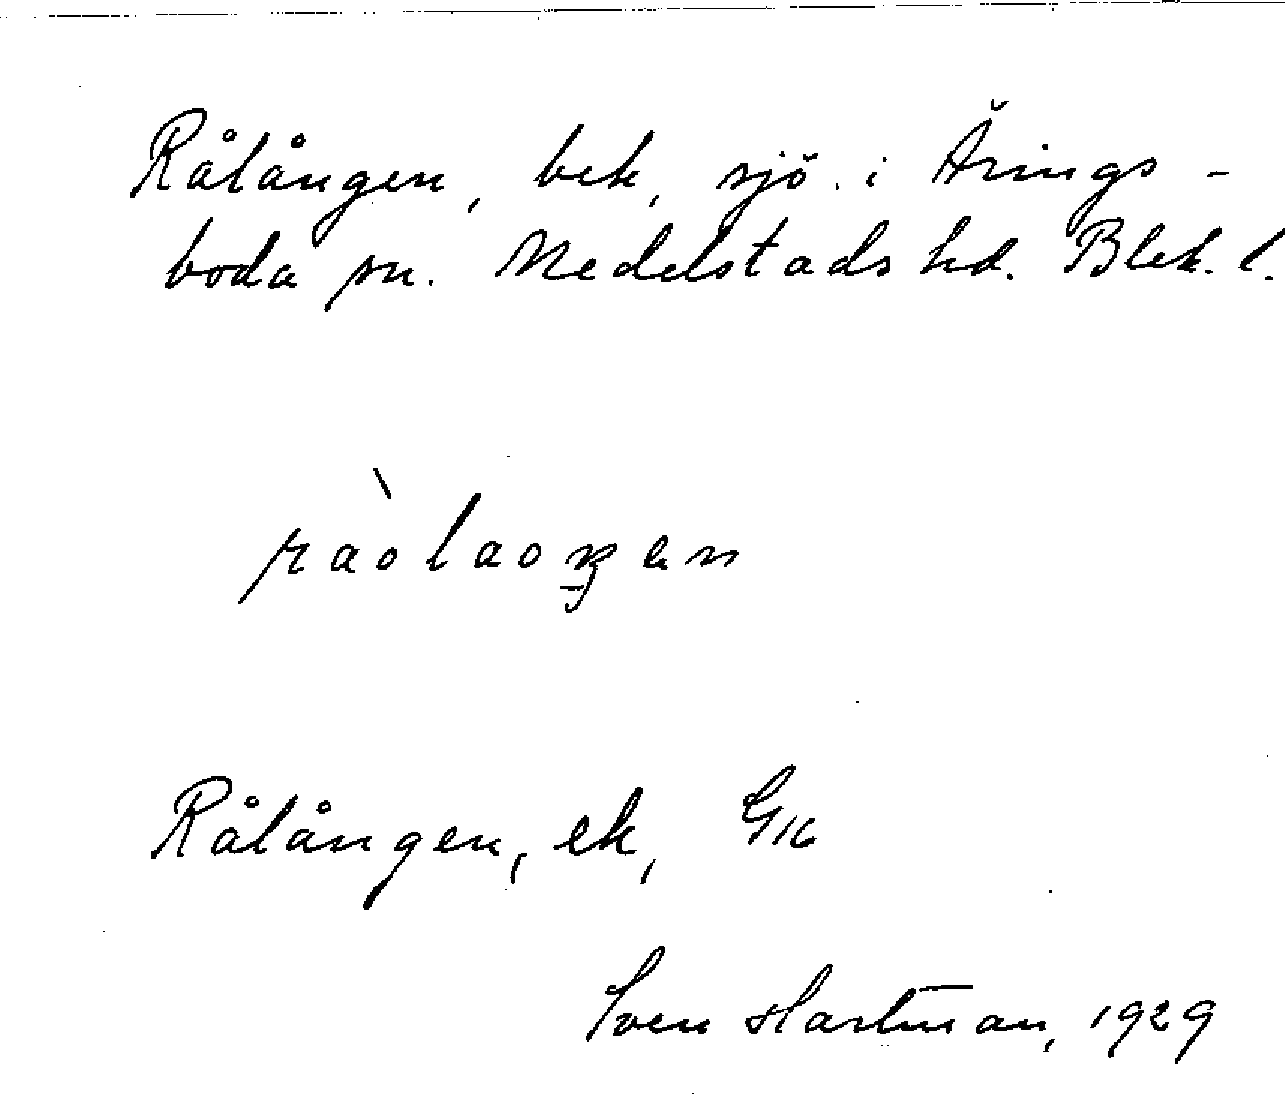 Rålången, bek, sjö. i Årings-
boda sn. Medelstads hd. Blek. l.
ràolaoŋen
Rålången, ek, G16
Sven Hartman, 1929